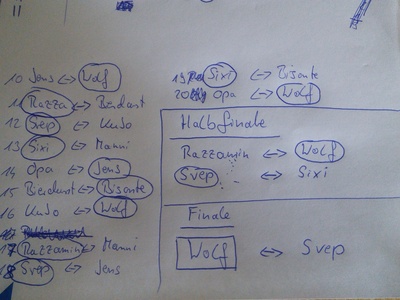 10 Jens <-> Wolf
11 Razza <-> Berdant
12 Svep <-> Kudo
13 Sixi <-> Manni
14 Opa <-> Jens
15 Berdant <-> Bisonte
16 Kudo <-> Wolf
17 Razzamin <-> Manni
18 Svep <-> Jens
19 Sixi <-> Bisonte
20 Opa <-> Wolf
Halbfinale
Razzamin <-> Wolf
Svep <-> Sixi
Finale
Wolf <-> Svep